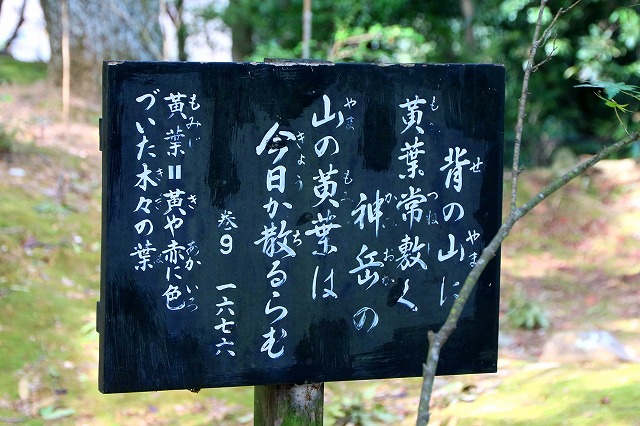 背の山に
黄葉常敷く
神岳の
山の黄葉は
今日か散るらむ
巻9 一六七六
黄葉=黄や赤に色
づいた木々の葉